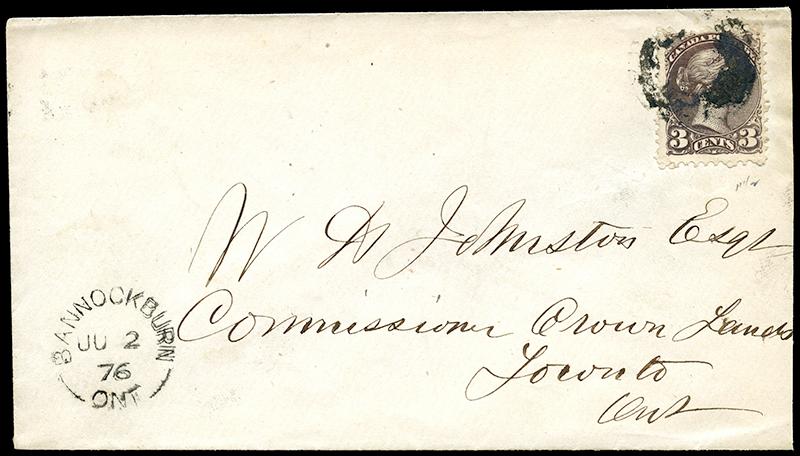 CANADA POSTAGE
3 CENTS 3
W D Johnston Esqr
Commissioner Crown Lands
Toronto
Ont
BANNOCKBURN
JU 2
76
ONT